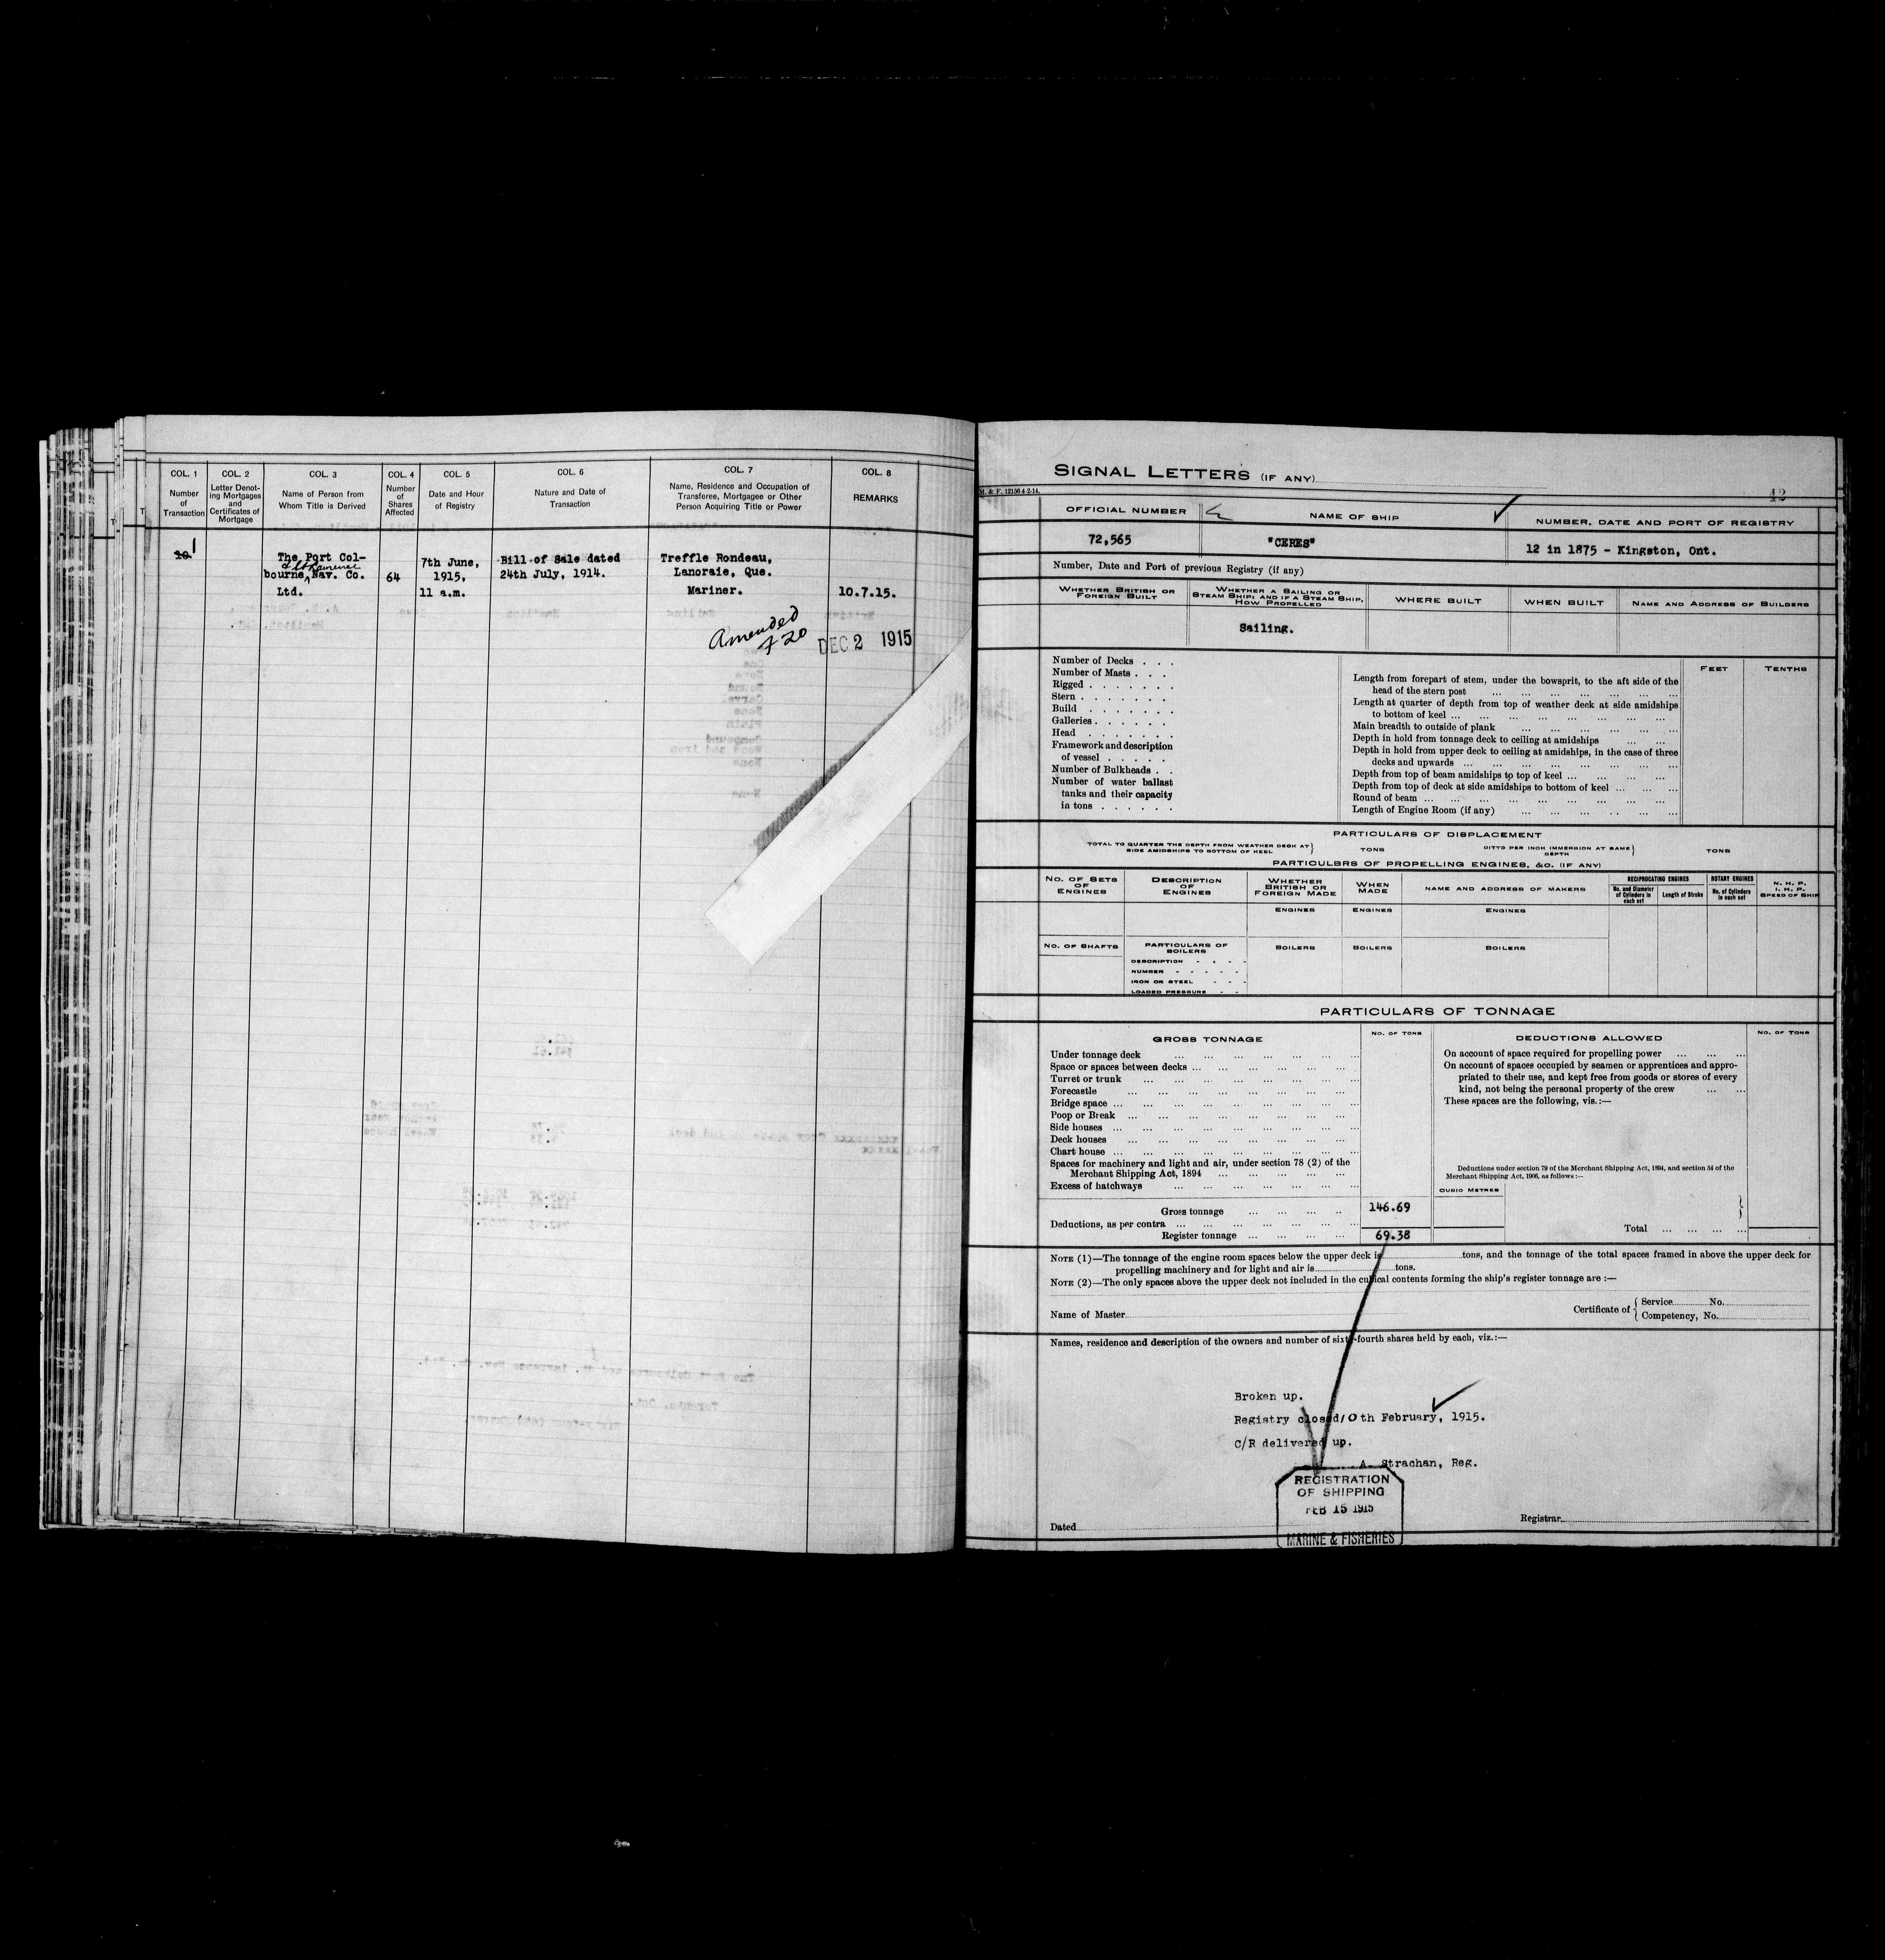 COL. 1
Number
of
Transaction
COL. 2
Letter Denot-
ing Mortgages
and
Certificates of
Mortgage
COL. 3
Name of Person from
Whom Title is Derived
COL. 4
Number
of
Shares
Affected
COL. 5
Date and Hour
of Registry
COL. 6
Nature and Date of
Transaction
COL. 7
Name, Residence and Occupation of
Transferee, Mortgagee or Other
Person Acquiring Title or Power
COL. 8
REMARKS
1
The Port Col-
& St Lawrence
bourne Nav. Co.
Ltd.
64
7th June,
1915,
11 a.m.
Bill of Sale dated
24th July, 1914.
Treffle Rondeau,
Lanoraie, Que.
Mariner.
10.7.15.
Amended
f 20
DEC 2 1915
SIGNAL LETTERS (IF ANY)
M. & F. 12156 4-2-14.
42
OFFICIAL NUMBER
NAME OF SHIP
NUMBER, DATE AND PORT OF REGISTRY
72,565
"CERES"
12 in 1875 - Kingston, Ont.
Number, Date and Port of previous Registry (if any)
WHETHER BRITISH OR
FOREIGN BUILT
WHETHER A SAILING OR
STEAM SHIP, AND IF A STEAM SHIP,
HOW PROPELLED
WHERE BUILT
WHEN BUILT
NAME AND ADDRESS OF BUILDERS
Sailing.
Number of Decks . . .
Number of Masts . . .
Rigged . . . . . . .
Stern . . . . . . . .
Build . . . . . . .
Galleries . . . . . .
Head . . . . . . .
Framework and description
of vessel . . . . .
Number of Bulkheads . .
Number of water ballast
tanks and their capacity
in tons . . . . . .
FEET
TENTHS
Length from forepart of stem, under the bowsprit, to the aft side of the
head of the stern post
Length at quarter of depth from top of weather deck at side amidships
to bottom of keel ...
Main breadth to outside of plank
Depth in hold from tonnage deck to ceiling at amidships
Depth in hold from upper deck to ceiling at amidships, in the case of three
decks and upwards ...
Depth from top of beam amidships to top of keel ...
Depth from top of deck at side amidships to bottom of keel ...
Round of beam ...
Length of Engine Room (if any)
PARTICULARS OF DISPLACEMENT
TOTAL TO QUARTER THE DEPTH FROM WEATHER DECK AT
SIDE AMIDSHIPS TO BOTTOM OF KEEL
TONS
DITTO PER INCH IMMERSION AT SAME
DEPTH
TONS
PARTICULBRS OF PROPELLING ENGINES, &C. (IF ANY)
NO. OF SETS
OF
ENGINES
DESCRIPTION
OF
ENGINES
WHETHER
BRITISH OR
FOREIGN MADE
WHEN
MADE
NAME AND ADDRESS OF MAKERS
RECIPROCATING ENGINES
No. and Diameter
of Cylinders in
each set
Length of Stroke
ROTARY ENGINES
No. of Cylinders
in each set
N. H. P.
I. H. P.
SPEED OF SHIP
ENGINES
ENGINES
ENGINES
NO. OF SHAFTS
PARTICULARS OF
BOILERS
BOILERS
BOILERS
BOILERS
DESCRIPTION
NUMBER
IRON OR STEEL
LOADED PRESSURE
PARTICULARS OF TONNAGE
GROSS TONNAGE
NO. OF TONS
DEDUCTIONS ALLOWED
NO. OF TONS
Under tonnage deck
Space or spaces between decks ...
Turret or trunk
Forecastle
Bridge space ...
Poop or Break
Side houses
Deck houses
Chart house ...
Spaces for machinery and light and air, under section 78 (2) of the
Merchant Shipping Act, 1894
Excess of hatchways
Gross tonnage
146.69
Deductions, as per contra ...
Register tonnage ...
69.38
On account of space required for propelling power
On account of spaces occupied by seamen or apprentices and appro-
priated to their use, and kept free from goods or stores of every
kind, not being the personal property of the crew
These spaces are the following, vis.:—
Deductions under section 79 of the Merchant Shipping Act, 1894, and section 54 of the
Merchant Shipping Act, 1906, as follows:—
CUBIC METRES
Total
NOTE (1)—The tonnage of the engine room spaces below the upper deck is tons, and the tonnage of the total spaces framed in above the upper deck for
propelling machinery and for light and air is tons.
NOTE (2)—The only spaces above the upper deck not included in the cubical contents forming the ship's register tonnage are :—
Name of Master
Certificate of
Service No.
Competency, No.
Names, residence and description of the owners and number of sixty-fourth shares held by each, viz.:—
Broken up.
Registry closed 10th February, 1915.
C/R delivered up.
A. Strachan, Reg.
REGISTRATION
OF SHIPPING
FEB 15 1915
MARINE & FISHERIES
Dated
Registrar